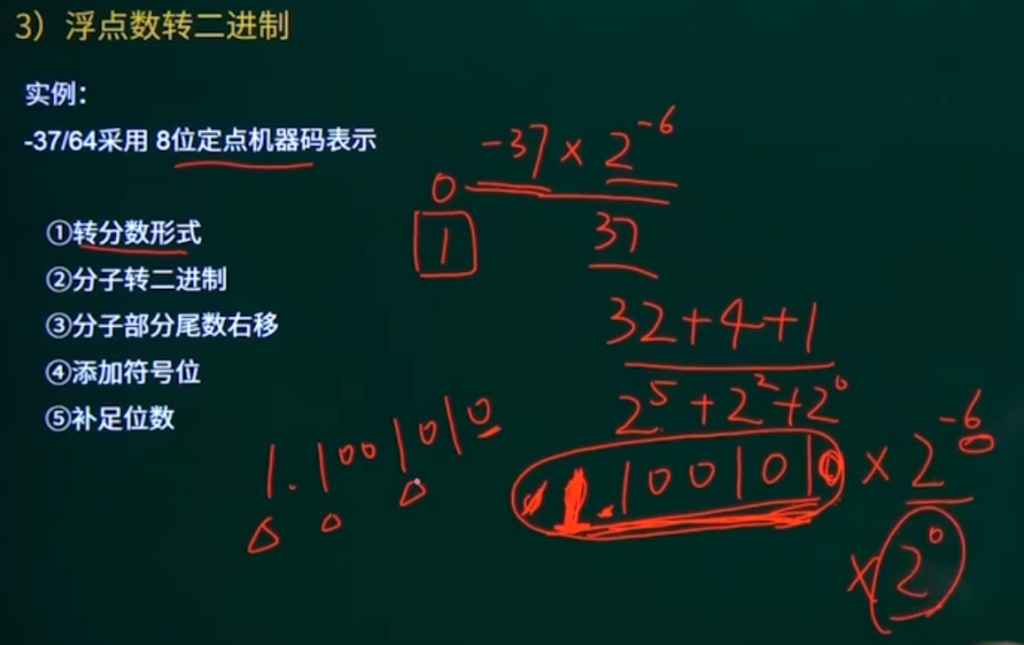 3）浮点数转二进制
实例：
-37/64采用 8位定点机器码表示
①转分数形式
②分子转二进制
③分子部分尾数右移
④添加符号位
⑤补足位数
-37 × 2^-6
0
1
37
32+4+1
2^5+2^2+2^0
1.1001010
.1001010 × 2^-6
× 2^0